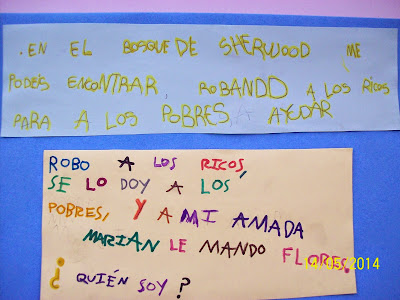 .EN EL BOSQUE DE SHERWOOD ME
PODEÍS ENCONTRAR, ROBANDO A LOS RICOS
PARA A LOS POBRES, A AYUDAR
ROBO A LOS RICOS,
SE LO DOY A LOS
POBRES, Y A MI AMADA
MARIAN LE MANDO FLORES.
¿QUIÉN SOY?
14/05/2014